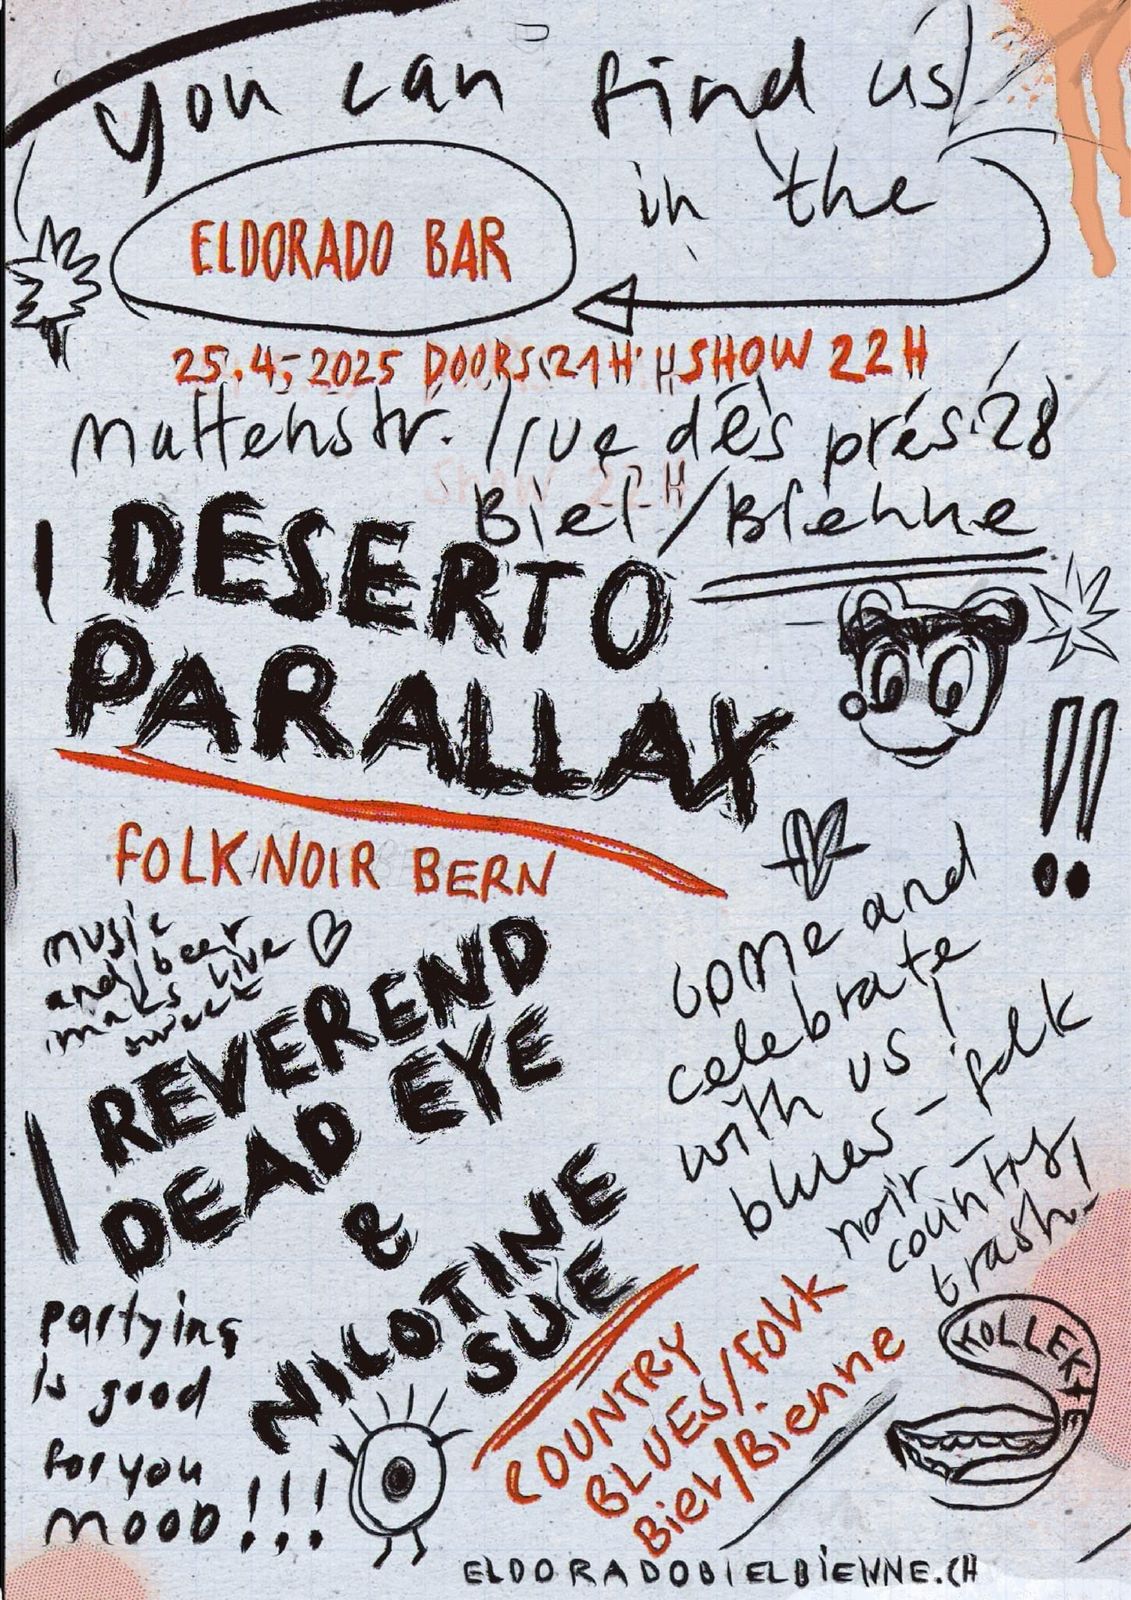 you can find us
in the
ELDORADO BAR
25.4.2025 DOORS 21H SHOW 22H
Mattenstr. / rue dés prés 28
Show 22H
Biel/Bienne
DESERTO
PARALLAX
FOLK NOIR BERN
music
and beer
maks live
sweet
REVEREND
DEAD EYE
&
NICOTINE
SUE
come and
celebrate
with us!
blues-folk
noir-
country,
trash
COUNTRY
BLUES/FOLK
Biel/Bienne
KOLLEKTE
partying
is good
for you
mood!!!
ELDORADOBIELBIENNE.CH